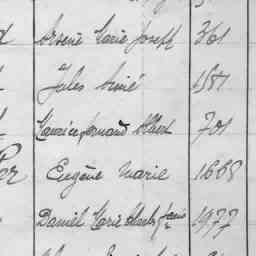 Arsène Marie Joseph 361
Jules Aimé 1581
Maurice Fernand Albert 701
Eugène Marie 1668
Daniel Marie Charles 1977